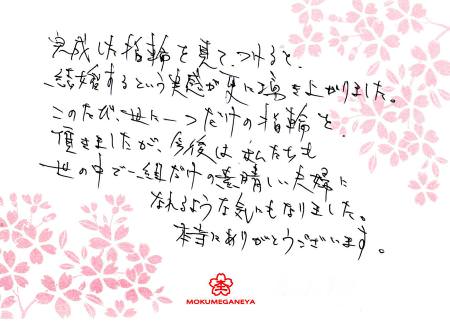 完成した指輪を見て、つけると、
結婚するという実感が更に湧き上がりました。
このたび、世に一つだけの指輪を
頂きましたが、今後は私たちも
世の中で一組だけの素晴しい夫婦に
なれるような気にもなりました。
本当にありがとうございます。
MOKUMEGANEYA